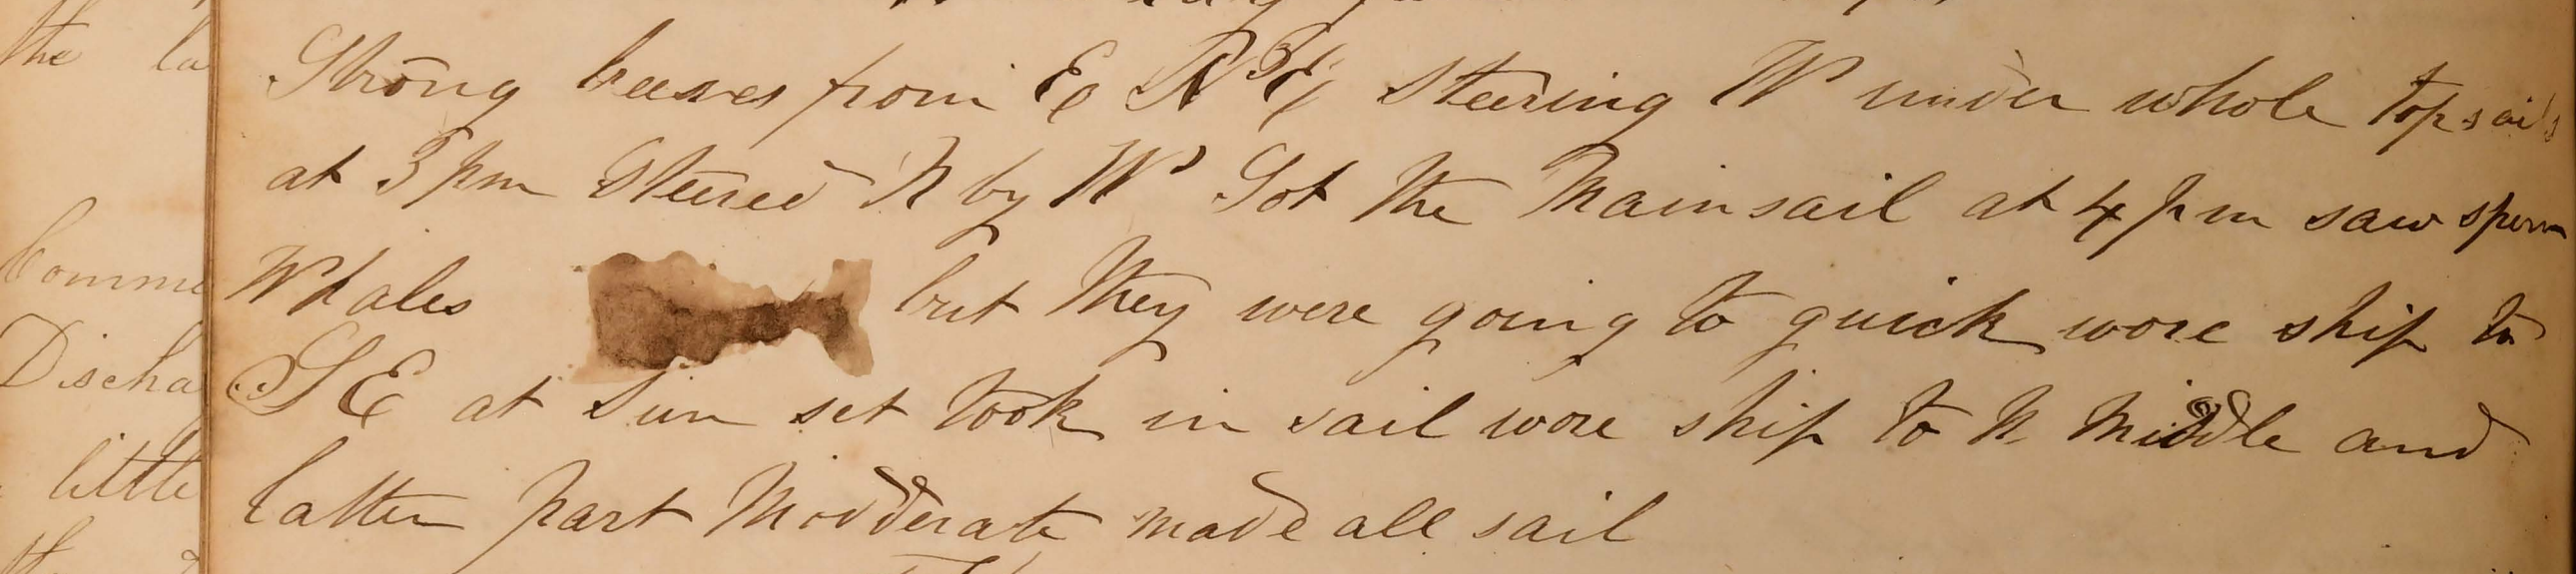 the la
Strong breeses from E N E Steering W under whole topsails
at 3 pm Steered N by W Sot the Mainsail at 4 pm saw sperm
Whales but they were going to quick wore ship to
Comme
SE at Sun set took in sail wore ship to N Middle and
Discha
latter part Modderate made all sail
little